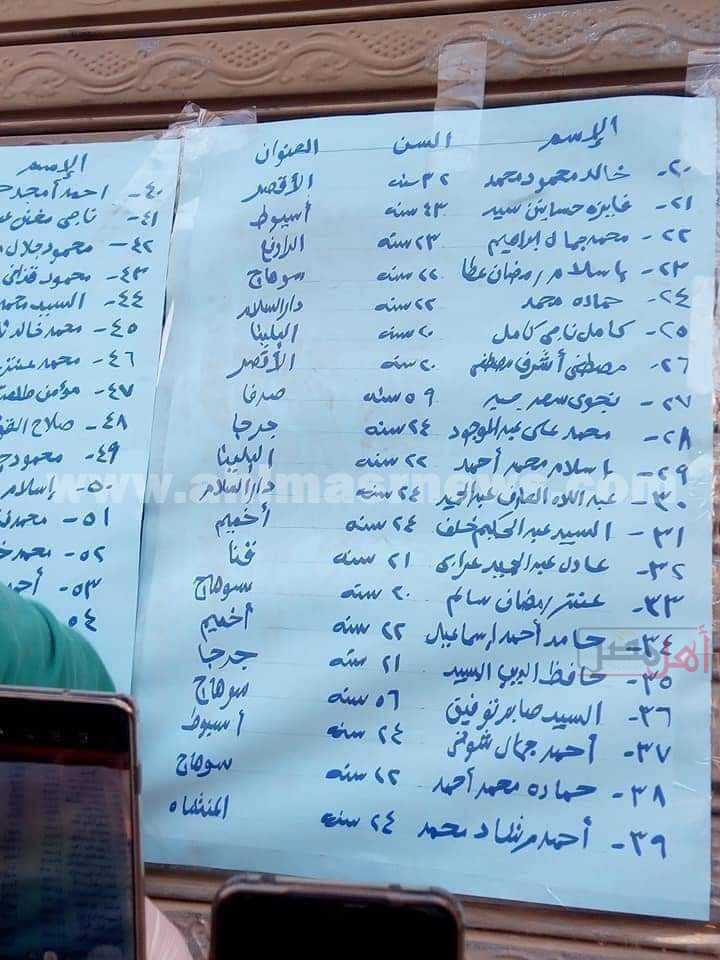 الإسم السن العنوان
٢٠- خالد محمود محمد ٣٢ سنه الأقصر
٢١- فايزه حسانين سيد ٤٣ سنه أسيوط
٢٢- محمد جمال ابراهيم ٢٣ سنه
٢٣- إسلام رمضان عطا ٢٢ سنه سوهاج
٢٤- حماده محمد ٢٢ سنه دار السلام
٢٥- كامل ناجى كامل ٢٠ سنه البلينا
٢٦- مصطفى أشرف مصطفى ٢٠ سنه الأقصر
٢٧- نجوى سعد سيد ٥٩ سنه صدفا
٢٨- محمد على عبد الموجود ٢٤ سنه جرجا
٢٩- إسلام محمد أحمد ٢٢ سنه البلينا
٣٠- عبد اللاه العارف عبد الحميد ٢٤ سنه دار السلام
٣١- السيد عبد الحليم خلف ٢٤ سنه أخميم
٣٢- عادل عبد الحميد عرابى ٢١ سنه قنا
٣٣- عنتر رمضان سالم ٢٠ سنه سوهاج
٣٤- حامد أحمد إسماعيل ٢٢ سنه أخميم
٣٥- حافظ السيد ٢١ سنه جرجا
٣٦- السيد صابر توفيق ٥٦ سنه سوهاج
٣٧- أحمد جمال شوقى ٢٤ سنه أسيوط
٣٨- حماده محمد أحمد ٢٢ سنه سوهاج
٣٩- أحمد رشاد محمد ٢٤ سنه المنشاه
الإسم
٤٠- احمد أمجد
٤١- ناجى
٤٢- محمود جلال
٤٣- محمود
٤٤- السيد محمد
٤٥- محمد خالد
٤٦- محمد
٤٧- مؤمن طلعت
٤٨- صلاح
٤٩- محمود
٥٠- إسلام
٥١- محمد
٥٢- محمد
٥٣- أحمد
٥٤
www.ahlmasrnews.com
أهل مصر